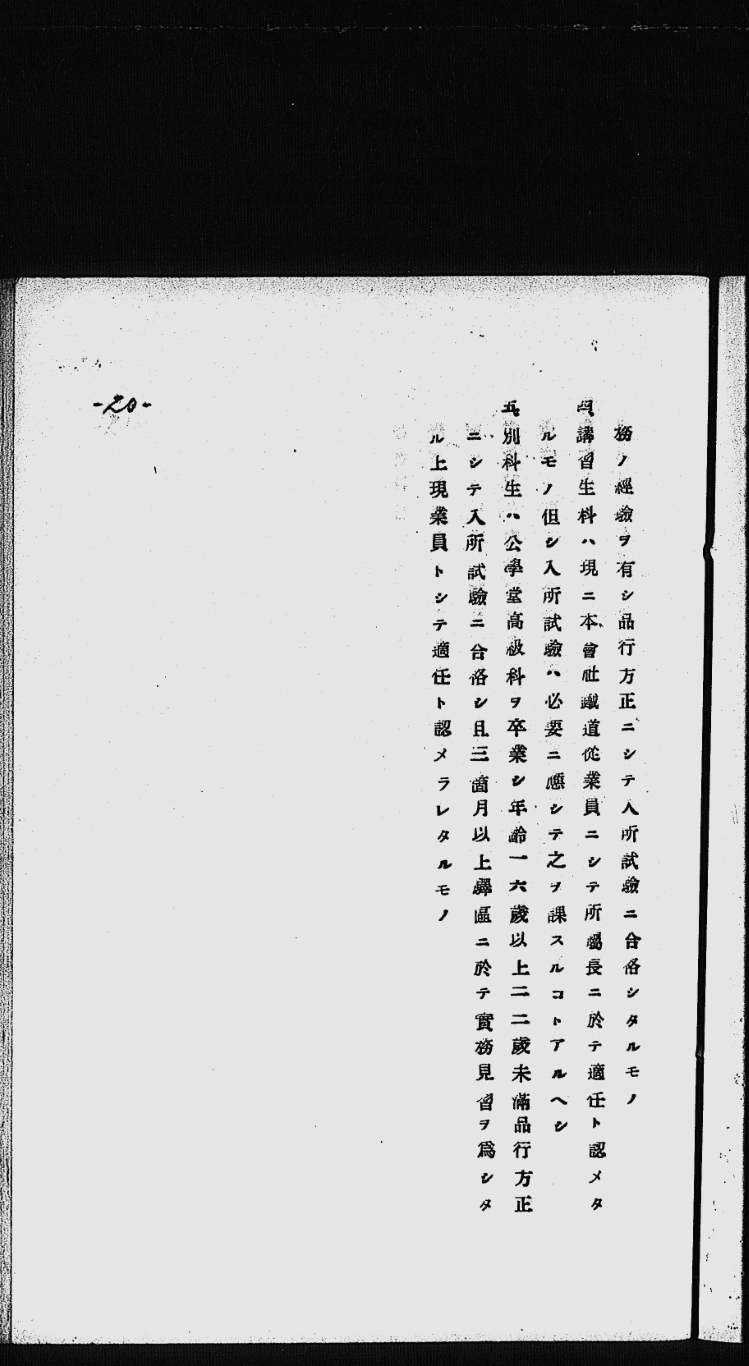 務ノ經驗ヲ有シ品行方正ニシテ入所試驗ニ合格シタルモノ
四、講習生科ハ現ニ本會社鐵道從業員ニシテ所屬長ニ於テ適任ト認メタ
ルモノ但シ入所試驗ハ必要ニ應シテ之ヲ課スルコトアルヘシ
五、別科生ハ公學堂高級科ヲ卒業シ年齡一六歲以上二二歲未滿品行方正
ニシテ入所試驗ニ合格シ且三箇月以上驛區ニ於テ實務見習ヲ爲シタ
ル上現業員トシテ適任ト認メラレタルモノ
-20-